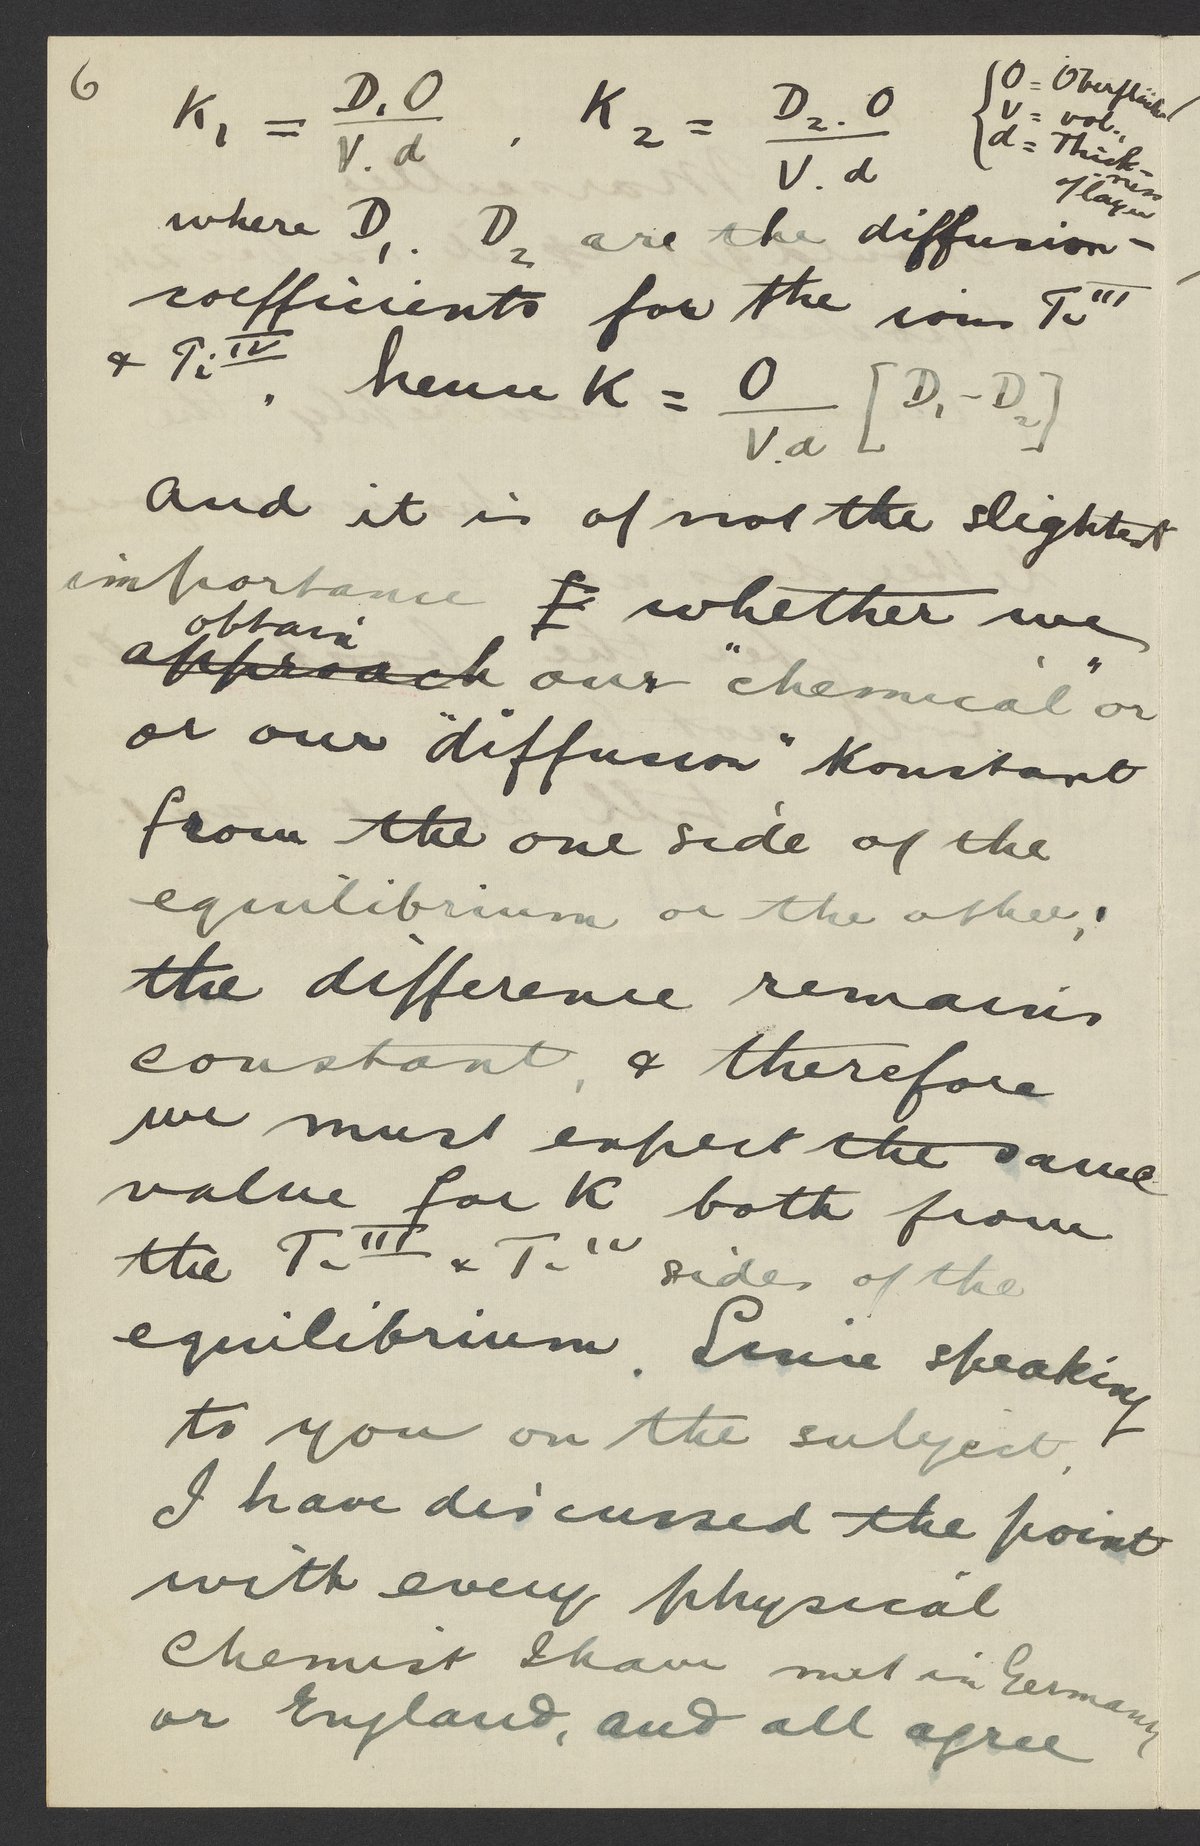 6
K₁ = D₁O / V.d , K₂ = D₂.O / V.d { O = Oberfläche
V = vol.,
d = Thick-
ness
of layer
where D₁. D₂ are the diffusion-
coefficients for the ions Ti III
& Ti IV. hence K = O / V.d [D₁ - D₂]
And it is of not the slightest
importance E whether we
obtain
approach our "chemical" or
or our "diffusion" Konstant
from the one side of the
equilibrium or the other;
the difference remains
constant, & therefore
we must expect the same
value for K both from
the Ti III & Ti IV sides of the
equilibrium. Since speaking
to you on the subject,
I have discussed the point
with every physical
chemist I have met in Germany
or England, and all agree